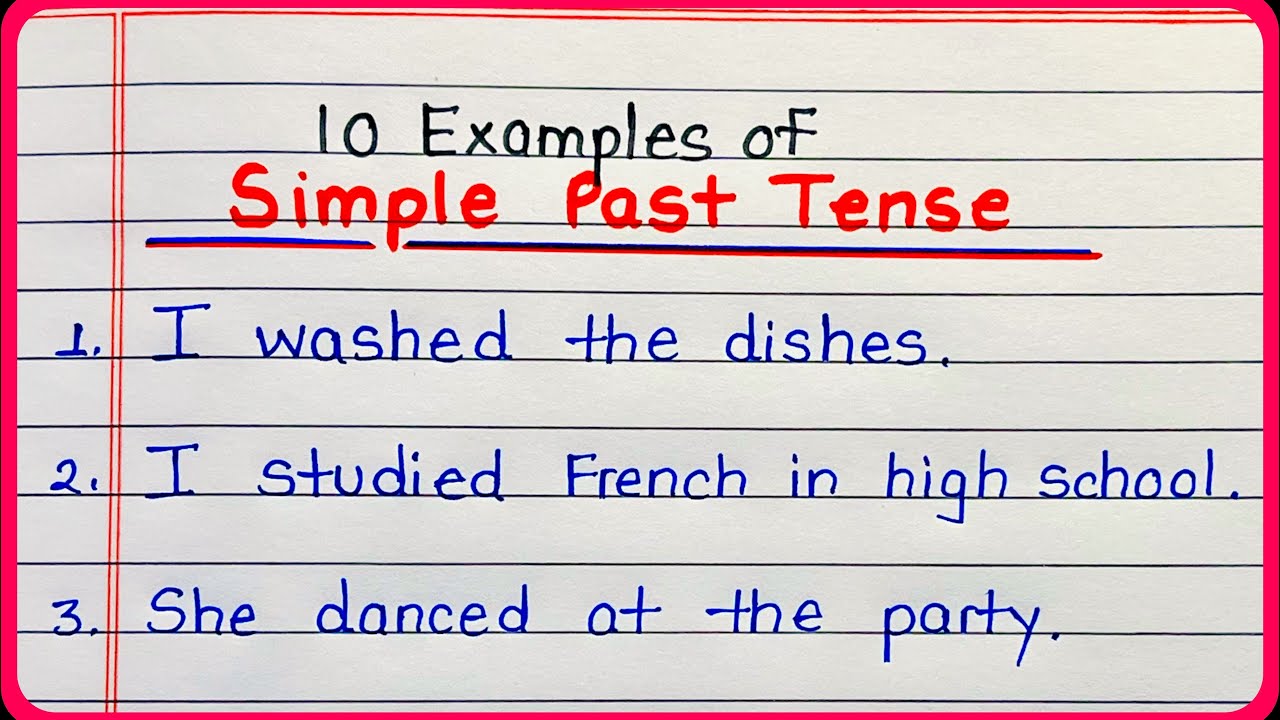 10 Examples of
Simple Past Tense
1. I washed the dishes.
2. I studied French in high school.
3. She danced at the party.